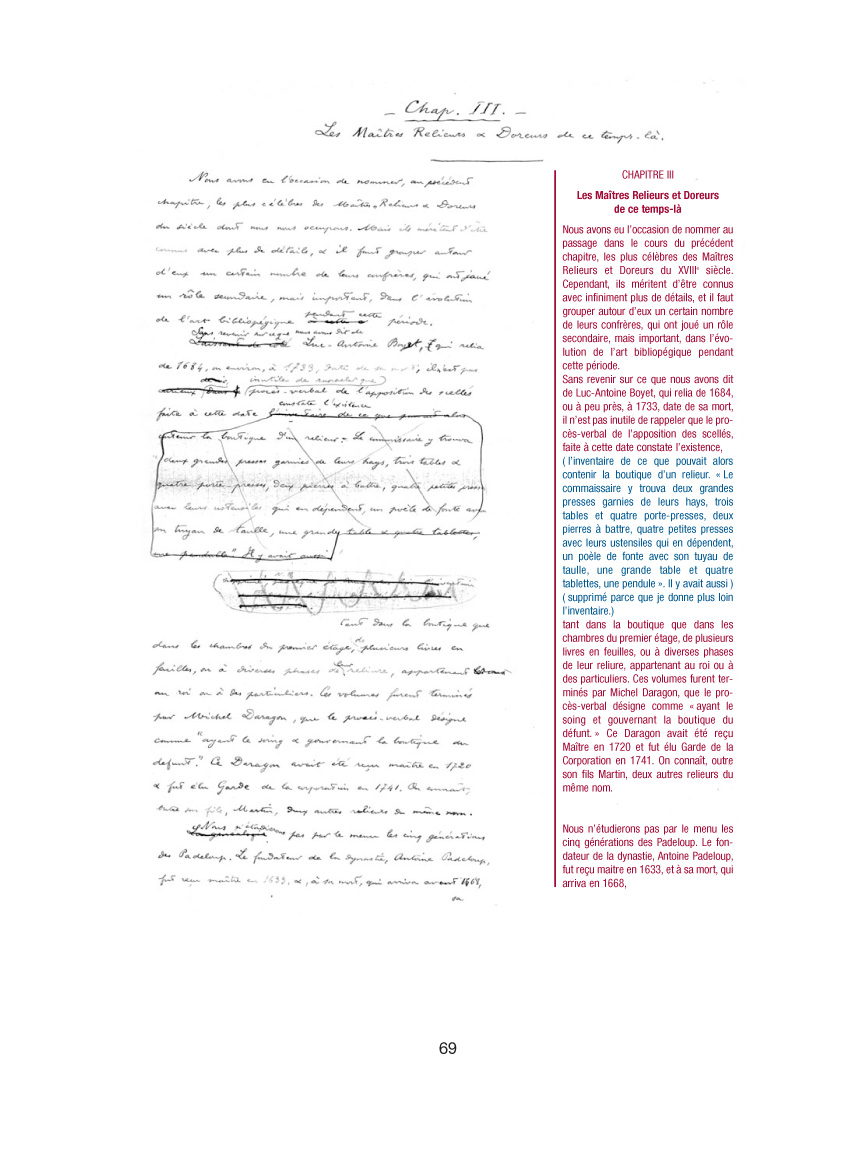 — Chap. III. —
Les Maîtres Relieurs & Doreurs de ce temps-là.
Nous avons eu l'occasion de nommer, au précédent
chapitre, les plus célèbres des Maîtres Relieurs & Doreurs
du siècle dont nous nous occupons. Mais ils méritent d'être
connus avec plus de détails, & il faut grouper autour
d'eux un certain nombre de leurs confrères, qui ont joué
un rôle secondaire, mais important, dans l'évolution
de l'art bibliopégique pendant cette période.
Sans revenir sur ce que nous avons dit de
Luc-Antoine Boyet, qui relia
de 1684, ou environ, à 1733, date de sa mort, il n'est pas
inutile de rappeler que
procès-verbal de l'apposition des scellés
constate l'existence
faite à cette date l'inventaire de ce que pouvait alors
contenir la boutique d'un relieur. Le commissaire y trouva
deux grandes presses garnies de leurs hays, trois tables &
quatre porte-presses, deux pierres à battre, quatre petites presses
avec leurs ustensiles qui en dépendent, un poêle de fonte avec
son tuyau de taille, une grande table & quatre tablettes,
une pendulle". Il y avait aussi
tant dans la boutique que
dans les chambres du premier étage, de plusieurs livres en
feuilles, ou à diverses phases de leur reliure, appartenant
au roi ou à des particuliers. Ces volumes furent terminés
par Michel Daragon, que le procès-verbal désigne
comme "ayant le soing & gouvernant la boutique du
defunt." Ce Daragon avait été reçu maître en 1720
& fut élu Garde de la corporation en 1741. On connaît,
outre son fils, Martin, deux autres relieurs du même nom.
Nous n'étudierons pas par le menu les cinq générations
des Padeloup. Le fondateur de la dynastie, Antoine Padeloup,
fut reçu maître en 1633, &, à sa mort, qui arriva avant 1668,
sa
CHAPITRE III
Les Maîtres Relieurs et Doreurs
de ce temps-là
Nous avons eu l'occasion de nommer au
passage dans le cours du précédent
chapitre, les plus célèbres des Maîtres
Relieurs et Doreurs du XVIIIe siècle.
Cependant, ils méritent d'être connus
avec infiniment plus de détails, et il faut
grouper autour d'eux un certain nombre
de leurs confrères, qui ont joué un rôle
secondaire, mais important, dans l'évo-
lution de l'art bibliopégique pendant
cette période.
Sans revenir sur ce que nous avons dit
de Luc-Antoine Boyet, qui relia de 1684,
ou à peu près, à 1733, date de sa mort,
il n'est pas inutile de rappeler que le pro-
cès-verbal de l'apposition des scellés,
faite à cette date constate l'existence,
( l'inventaire de ce que pouvait alors
contenir la boutique d'un relieur. « Le
commaissaire y trouva deux grandes
presses garnies de leurs hays, trois
tables et quatre porte-presses, deux
pierres à battre, quatre petites presses
avec leurs ustensiles qui en dépendent,
un poèle de fonte avec son tuyau de
taulle, une grande table et quatre
tablettes, une pendule ». Il y avait aussi )
( supprimé parce que je donne plus loin
l'inventaire.)
tant dans la boutique que dans les
chambres du premier étage, de plusieurs
livres en feuilles, ou à diverses phases
de leur reliure, appartenant au roi ou à
des particuliers. Ces volumes furent ter-
minés par Michel Daragon, que le pro-
cès-verbal désigne comme « ayant le
soing et gouvernant la boutique du
défunt. » Ce Daragon avait été reçu
Maître en 1720 et fut élu Garde de la
Corporation en 1741. On connaît, outre
son fils Martin, deux autres relieurs du
même nom.
Nous n'étudierons pas par le menu les
cinq générations des Padeloup. Le fon-
dateur de la dynastie, Antoine Padeloup,
fut reçu maitre en 1633, et à sa mort, qui
arriva en 1668,
69